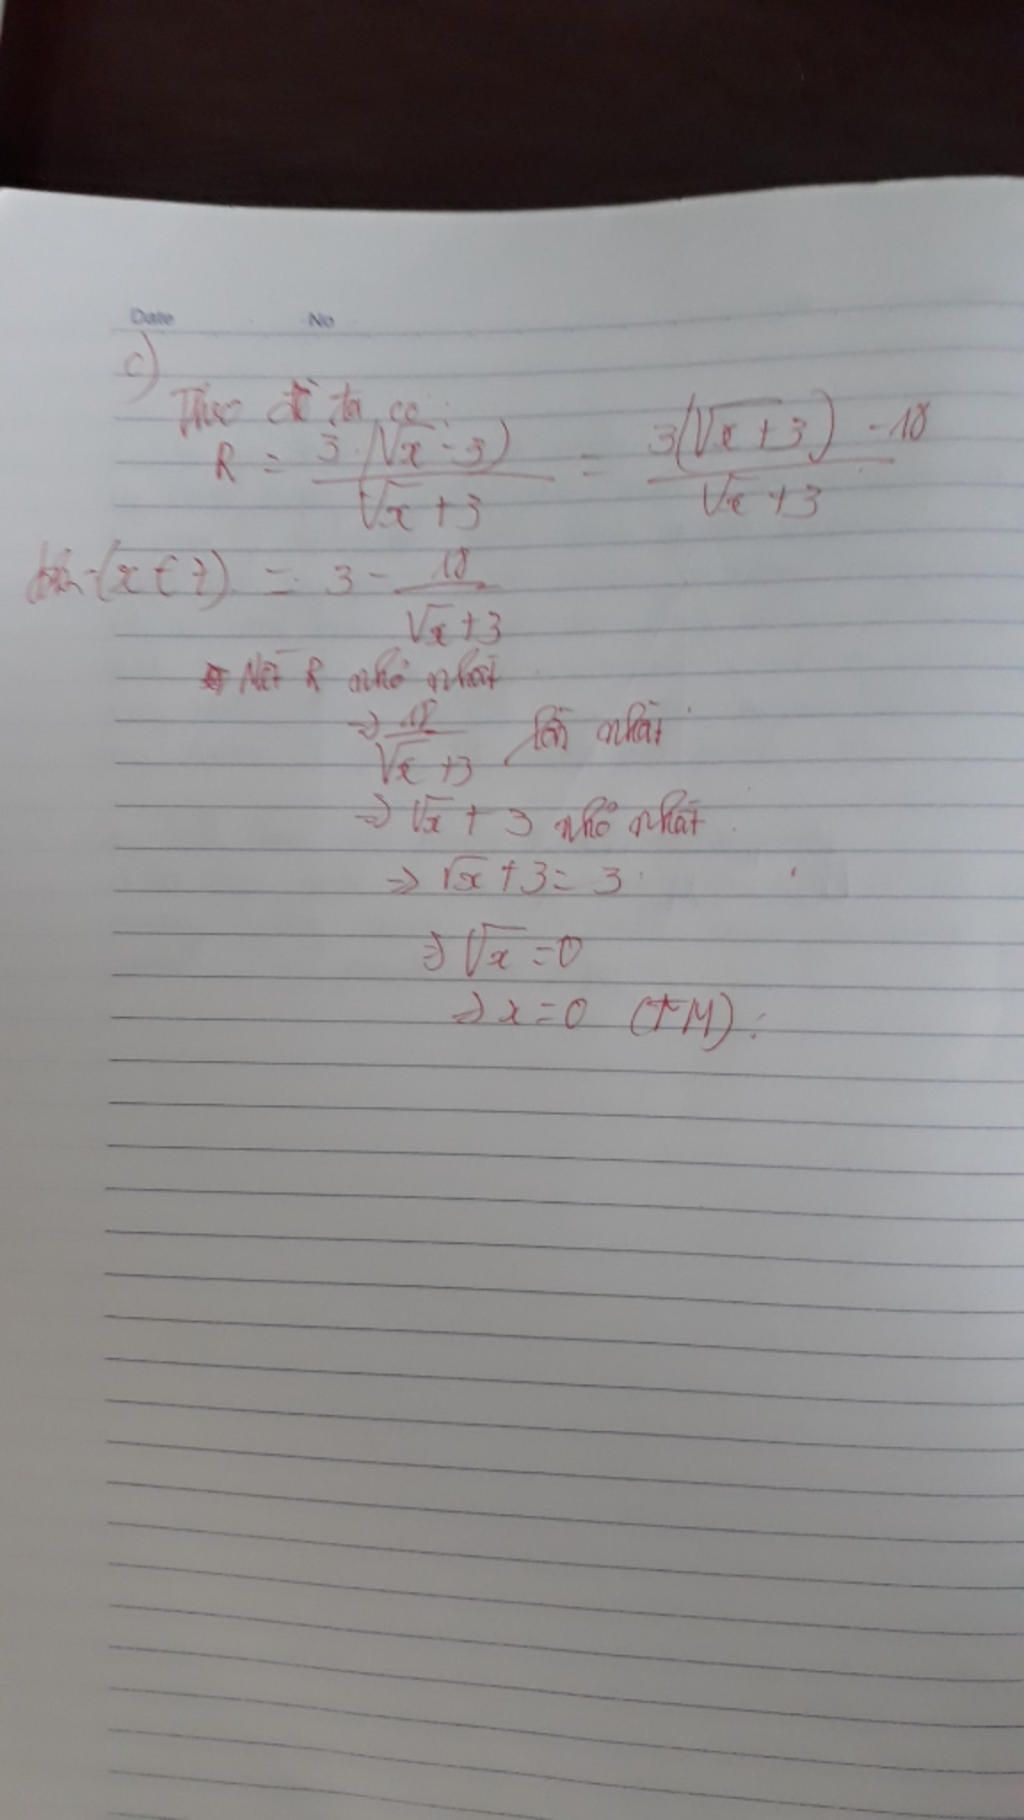 Date No
c)
Theo đề ta có:
R = 3.(√x - 3) / √x + 3 = 3(√x + 3) - 18 / √x + 3
= 3 - 18 / √x + 3
R nhỏ nhất
⇒ 18 / √x + 3 lớn nhất
⇒ √x + 3 nhỏ nhất
⇒ √x + 3 = 3
⇒ √x = 0
⇒ x = 0 (TM).